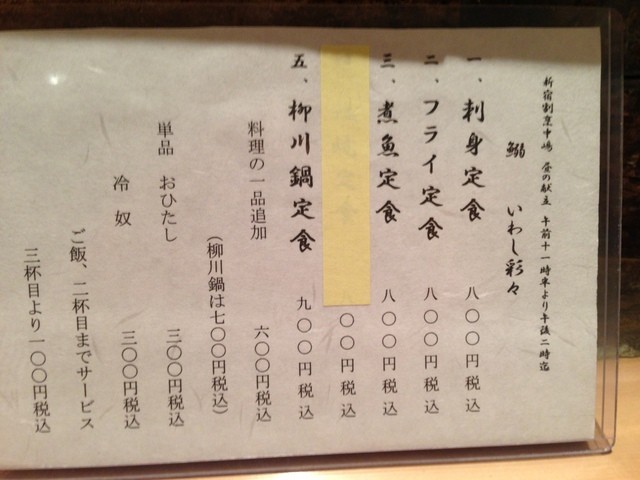 新宿割烹中嶋 昼の献立 午前十一時半より午後二時迄
鰯 いわし彩々
一、刺身定食 八〇〇円税込
二、フライ定食 八〇〇円税込
三、煮魚定食 八〇〇円税込
〇〇円税込
五、柳川鍋定食 九〇〇円税込
料理の一品追加 六〇〇円税込
（柳川鍋は七〇〇円税込）
単品 おひたし 三〇〇円税込
冷奴 三〇〇円税込
ご飯、二杯目までサービス
三杯目より一〇〇円税込